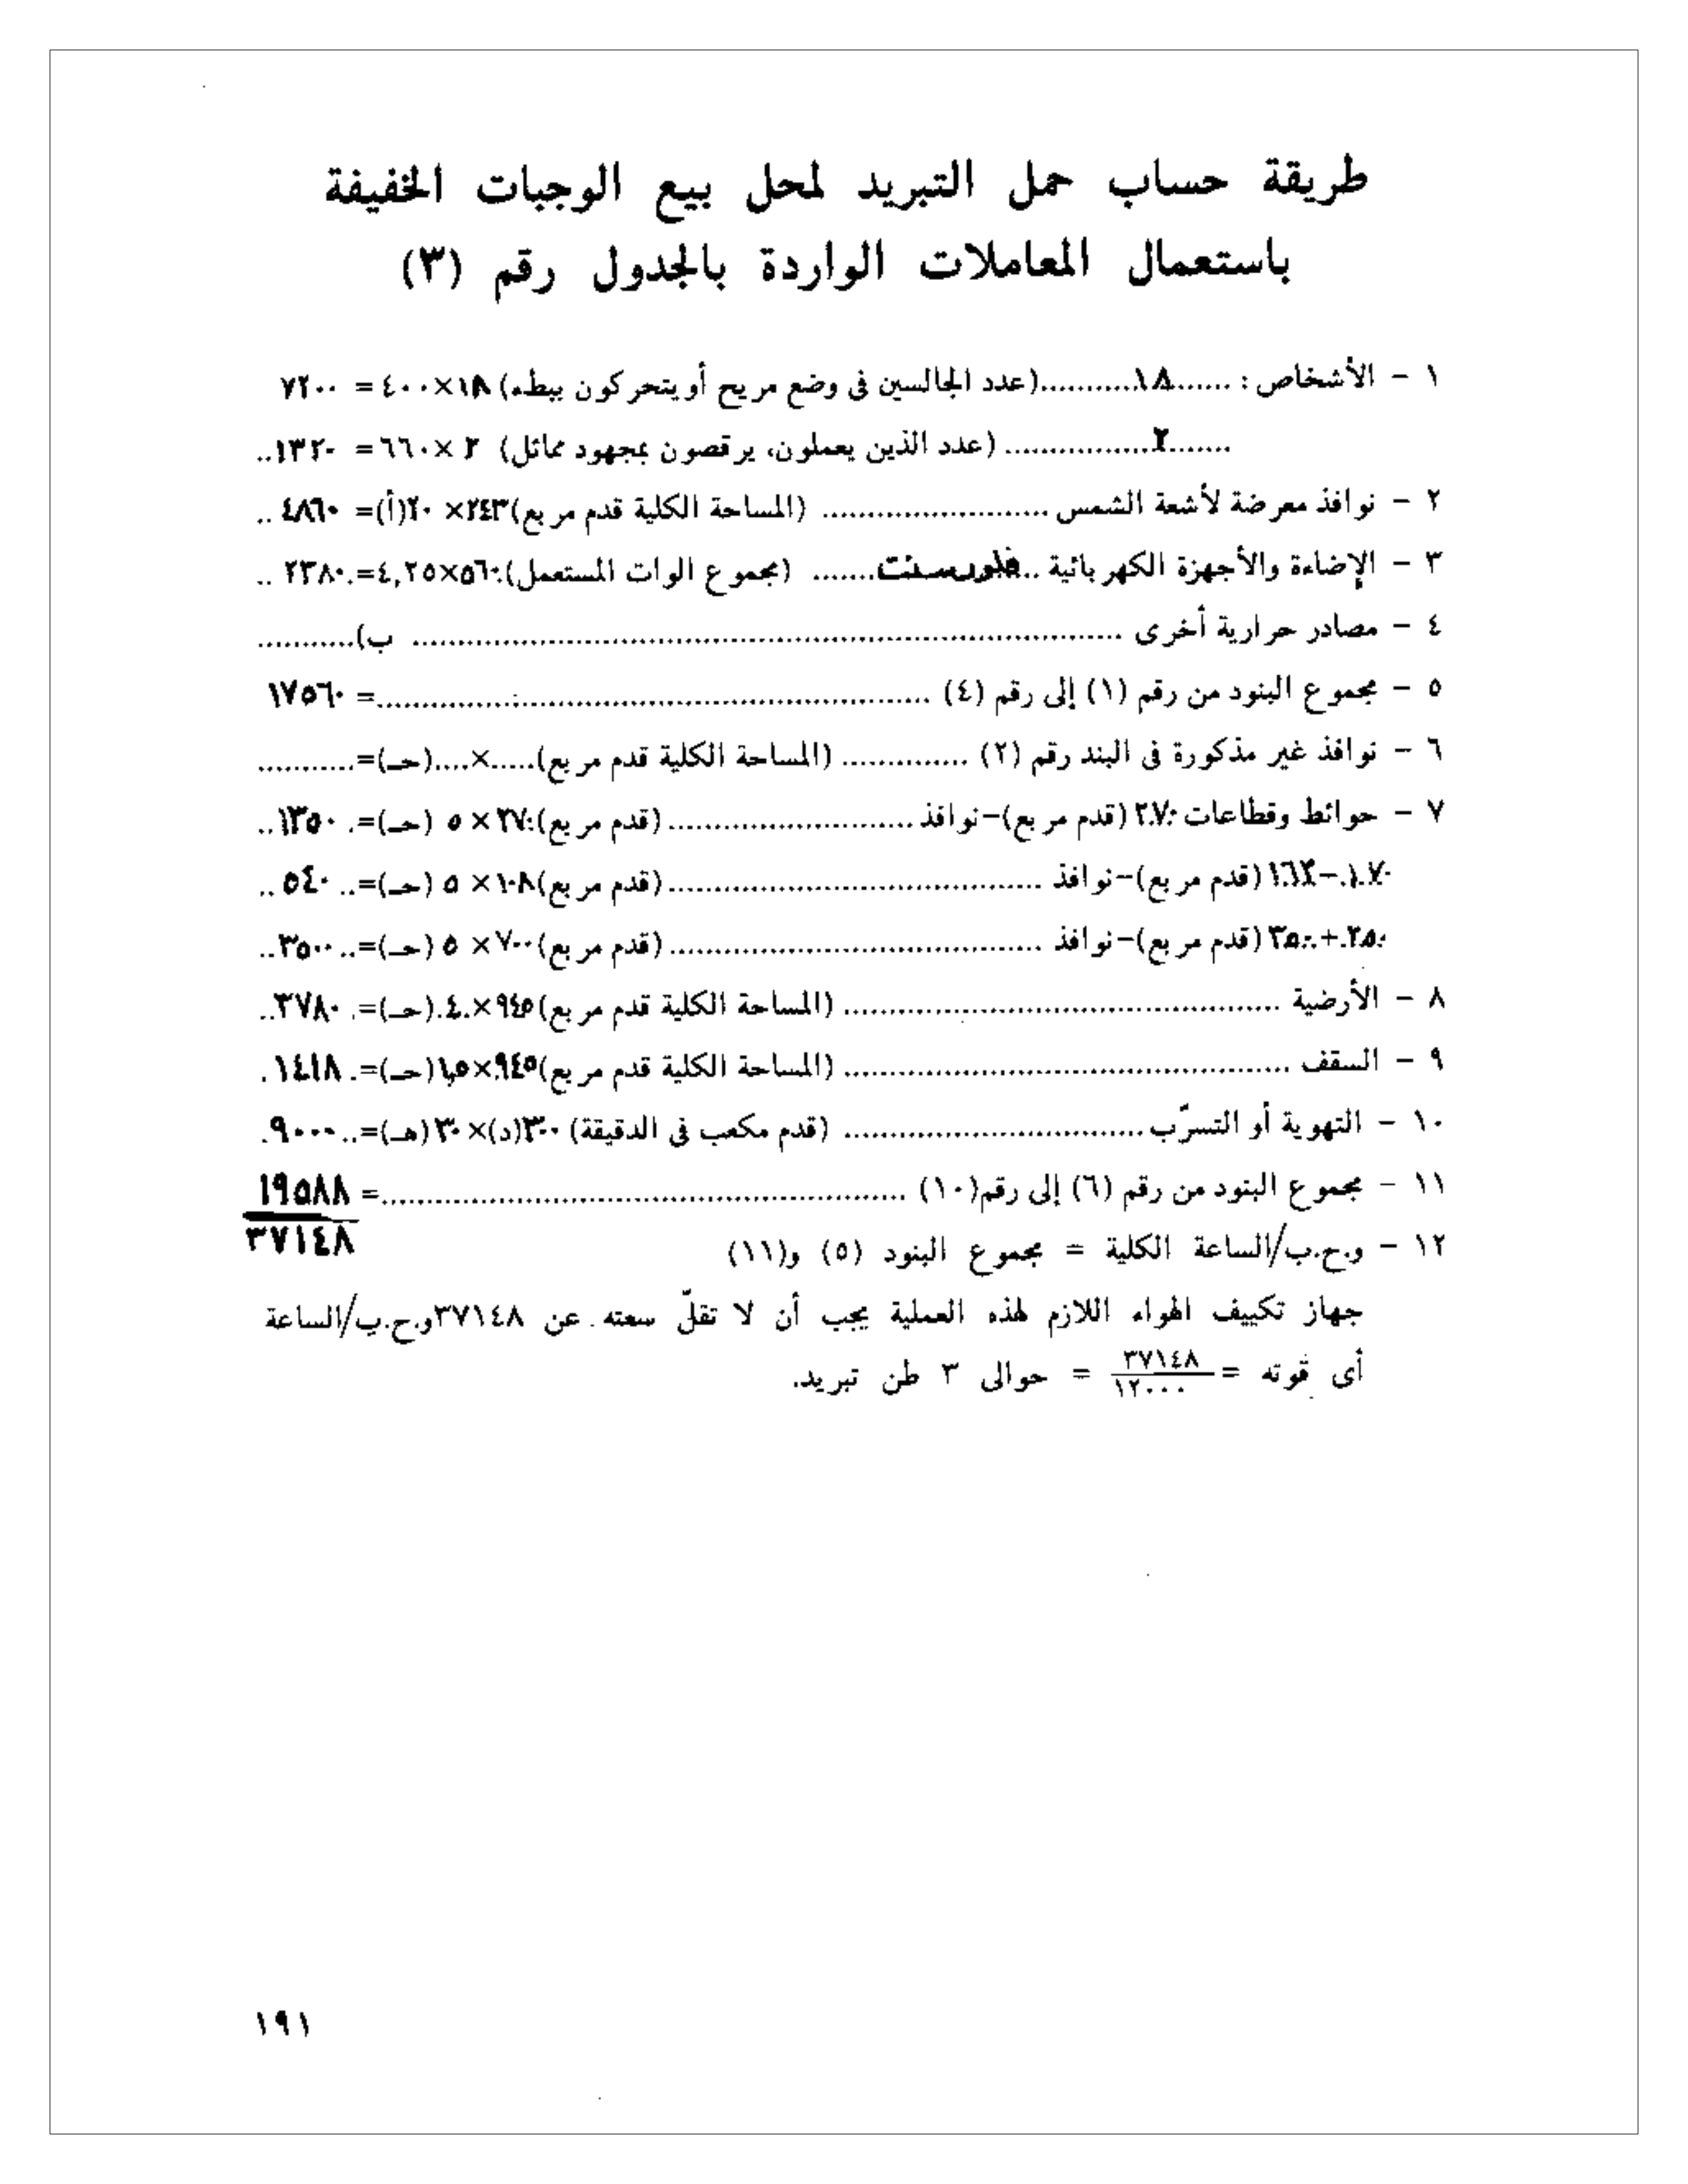 طريقة حساب حمل التبريد لمحل بيع الوجبات الخفيفة
باستعمال المعاملات الواردة بالجدول رقم (٣)
١ - الأشخاص : .......١٨...........(عدد الجالسين فى وضع مريح أو يتحركون ببطء) ١٨×٤٠٠ = ٧٢٠٠
.......٢................ (عدد الذين يعملون، يرقصون بمجهود مماثل) ٢ ×٦٦٠ = ١٣٢٠..
٢ - نوافذ معرضة لأشعة الشمس ......................... (المساحة الكلية قدم مربع)٢٤٣× ٢٠(أ)= ٤٨٦٠ ..
٣ - الإضاءة والأجهزة الكهربائية ..فلورسنت....... (مجموع الوات المستعمل)٥٦٠×٤,٢٥=.٢٣٨٠ ..
٤ - مصادر حرارية أخرى ................................................................................ ب)...........
٥ - مجموع البنود من رقم (١) إلى رقم (٤) ..............................................................= ١٧٥٦٠
٦ - نوافذ غير مذكورة فى البند رقم (٢) .............. (المساحة الكلية قدم مربع).....×....(حـ)=...........
٧ - حوائط وقطاعات ٢٧٠ (قدم مربع)-نوافذ ........................... (قدم مربع)٢٧٠ × ٥ (حـ)=. ١٣٥٠..
١٠٧٠-١٦٢ (قدم مربع)-نوافذ ......................................... (قدم مربع)١٠٨ × ٥ (حـ)=.. ٥٤٠ ..
٢٥٠+٣٥٠ (قدم مربع)-نوافذ ......................................... (قدم مربع)٧٠٠ × ٥ (حـ)=.. ٣٥٠٠..
٨ - الأرضية ................................................ (المساحة الكلية قدم مربع)٩٤٥×.٤.(حـ)=. ٣٧٨٠..
٩ - السقف ................................................. (المساحة الكلية قدم مربع)٩٤٥×١,٥(حـ)=. ١٤١٨ .
١٠ - التهوية أو التسرّب ................................. (قدم مكعب فى الدقيقة) ٣٠٠(د)×٣٠(هـ)=.. ٩٠٠٠.
١١ - مجموع البنود من رقم (٦) إلى رقم(١٠) ..........................................................= ١٩٥٨٨
١٢ - و.ح.ب/الساعة الكلية = مجموع البنود (٥) و(١١) ٣٧١٤٨
جهاز تكييف الهواء اللازم لهذه العملية يجب أن لا تقلّ سعته عن ٣٧١٤٨و.ح.ب/الساعة
أى قوته = ٣٧١٤٨/١٢٠٠٠ = حوالى ٣ طن تبريد.
١٩١